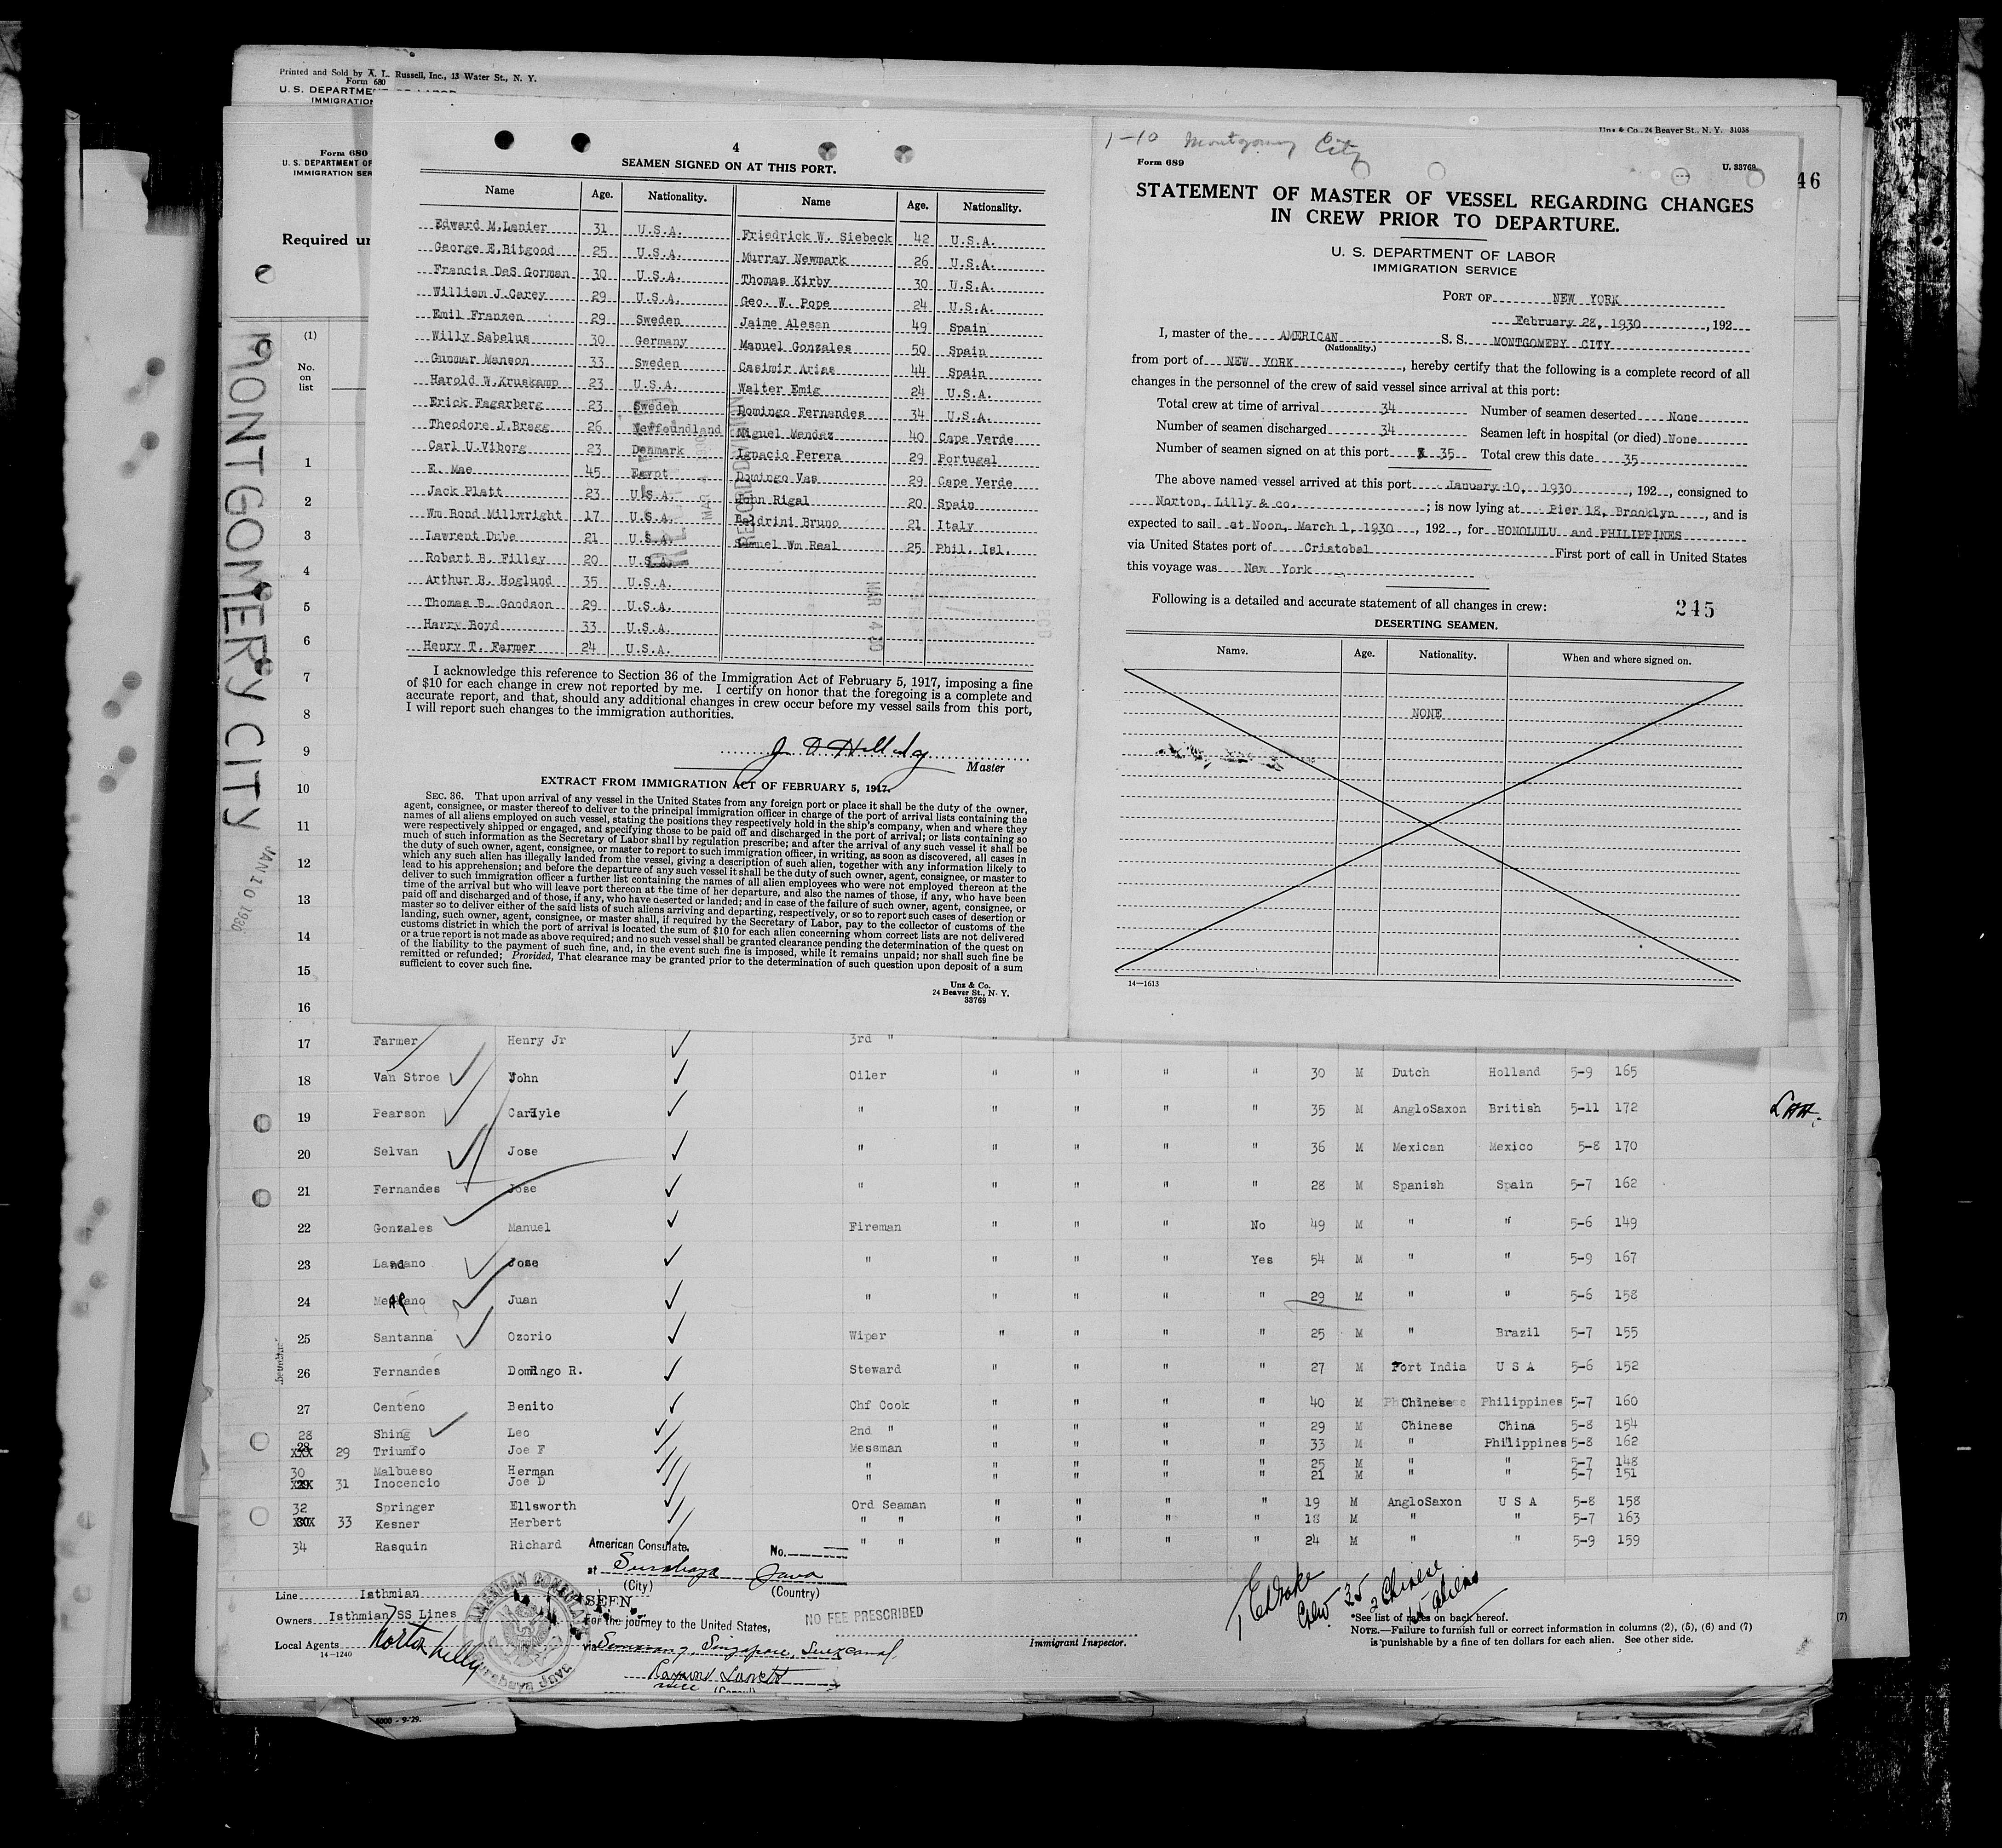 Printed and Sold by A. L. Russell, Inc., 13 Water St., N. Y.
Form 680
U. S. DEPARTMENT OF LABOR
IMMIGRATION
Form 680
U. S. DEPARTMENT OF
IMMIGRATION SER
Required un
(1)
No.
on
list
MONTGOMERY CITY
JAN 10 1930
4
SEAMEN SIGNED ON AT THIS PORT.
Name Age. Nationality. Name Age. Nationality.
Edward M.Lanier 31 U.S.A. Friedrick W. Siebeck 42 U.S.A.
George E.Bitgood 25 U.S.A. Murray Newmark 26 U.S.A.
Francis DaS Gorman 30 U.S.A. Thomas Kirby 30 U.S.A.
William J.Carey 29 U.S.A. Geo. W. Pope 24 U.S.A.
Emil Franzen 29 Sweden Jaime Alesen 49 Spain
Willy Sabelus 30 Germany Manuel Gonzales 50 Spain
Gunnar Manson 33 Sweden Casimir Arias 44 Spain
Harold W.Kruskamp 23 U.S.A. Walter Emig 24 U.S.A.
Erick Fagerberg 23 Sweden Domingo Fernandes 34 U.S.A.
Theodore J.Bragg 26 Newfoundland Miguel Mendez 40 Cape Verde
Carl U.Viborg 23 Denmark Ignacio Perera 29 Portugal
E. Mae 45 Egypt Domingo Vas 29 Cape Verde
Jack Platt 23 U.S.A. John Rigal 20 Spain
Wm Bond Millwright 17 U.S.A. Baldrini Bruno 21 Italy
Lawrent Dube 21 U.S.A. Samuel Wm Real 25 Phil. Isl.
Robert B. Filley 20 U.S.A.
Arthur B. Hoglund 35 U.S.A.
Thomas B. Goodson 29 U.S.A.
Harry Boyd 33 U.S.A.
Henry T. Farmer 24 U.S.A.
MAR 4 30
I acknowledge this reference to Section 36 of the Immigration Act of February 5, 1917, imposing a fine
of $10 for each change in crew not reported by me. I certify on honor that the foregoing is a complete and
accurate report, and that, should any additional changes in crew occur before my vessel sails from this port,
I will report such changes to the immigration authorities.
Master
EXTRACT FROM IMMIGRATION ACT OF FEBRUARY 5, 1917.
SEC. 36. That upon arrival of any vessel in the United States from any foreign port or place it shall be the duty of the owner,
agent, consignee, or master thereof to deliver to the principal immigration officer in charge of the port of arrival lists containing the
names of all aliens employed on such vessel, stating the positions they respectively hold in the ship's company, when and where they
were respectively shipped or engaged, and specifying those to be paid off and discharged in the port of arrival; or lists containing so
much of such information as the Secretary of Labor shall by regulation prescribe; and after the arrival of any such vessel it shall be
the duty of such owner, agent, consignee, or master to report to such immigration officer, in writing, as soon as discovered, all cases in
which any such alien has illegally landed from the vessel, giving a description of such alien, together with any information likely to
lead to his apprehension; and before the departure of any such vessel it shall be the duty of such owner, agent, consignee, or master to
deliver to such immigration officer a further list containing the names of all alien employees who were not employed thereon at the
time of the arrival but who will leave port thereon at the time of her departure, and also the names of those, if any, who have been
paid off and discharged and of those, if any, who have deserted or landed; and in case of the failure of such owner, agent, consignee, or
master so to deliver either of the said lists of such aliens arriving and departing, respectively, or so to report such cases of desertion or
landing, such owner, agent, consignee, or master shall, if required by the Secretary of Labor, pay to the collector of customs of the
customs district in which the port of arrival is located the sum of $10 for each alien concerning whom correct lists are not delivered
or a true report is not made as above required; and no such vessel shall be granted clearance pending the determination of the quest on
of the liability to the payment of such fine, and, in the event such fine is imposed, while it remains unpaid; nor shall such fine be
remitted or refunded; Provided, That clearance may be granted prior to the determination of such question upon deposit of a sum
sufficient to cover such fine.
Unz & Co.
24 Beaver St., N. Y.
33769
1-10 Montgomery City
Unz & Co., 24 Beaver St., N. Y. 31038
Form 689
U. 33769
46
STATEMENT OF MASTER OF VESSEL REGARDING CHANGES
IN CREW PRIOR TO DEPARTURE.
U. S. DEPARTMENT OF LABOR
IMMIGRATION SERVICE
PORT OF NEW YORK
February 28, 1930, 192
I, master of the AMERICAN S. S. MONTGOMERY CITY
(Nationality.)
from port of NEW YORK, hereby certify that the following is a complete record of all
changes in the personnel of the crew of said vessel since arrival at this port:
Total crew at time of arrival 34 Number of seamen deserted None
Number of seamen discharged 34 Seamen left in hospital (or died) None
Number of seamen signed on at this port 35 Total crew this date 35
The above named vessel arrived at this port January 10, 1930, 192, consigned to
Norton, Lilly & co. ; is now lying at Pier 18, Brooklyn, and is
expected to sail at Noon, March 1, 1930, 192, for HONOLULU and PHILIPPINES
via United States port of Cristobal First port of call in United States
this voyage was New York
Following is a detailed and accurate statement of all changes in crew:
245
DESERTING SEAMEN.
Name. Age. Nationality. When and where signed on.
NONE
14—1613
1
2
3
4
5
6
7
8
9
10
11
12
13
14
15
16
17 Farmer Henry Jr 3rd "
18 Van Stroe John Oiler " " " " 30 M Dutch Holland 5-9 165
19 Pearson Carlyle " " " " " 35 M AngloSaxon British 5-11 172
20 Selvan Jose " " " " " 36 M Mexican Mexico 5-8 170
21 Fernandes Jose " " " " " 28 M Spanish Spain 5-7 162
22 Gonzales Manuel Fireman " " " No 49 M " " 5-6 149
23 Landano Jose " " " " Yes 54 M " " 5-9 167
24 Juan " " " " " 29 M " " 5-6 158
25 Santanna Ozorio Wiper " " " " 25 M " Brazil 5-7 155
26 Fernandes Domingo R. Steward " " " " 27 M Port India U S A 5-6 152
27 Centeno Benito Chf Cook " " " " 40 M Chinese Philippines 5-7 160
28 Shing Leo 2nd " " " " " 29 M Chinese China 5-8 154
29 Triumfo Joe F Messman " " " " 33 M " Philippines 5-8 162
30 Malbueso Herman " " " " " 25 M " " 5-7 148
31 Inocencio Joe D " " " " " 21 M " " 5-7 151
32 Springer Ellsworth Ord Seaman " " " " 19 M AngloSaxon U S A 5-8 158
33 Kesner Herbert " " " " " " 18 M " " 5-7 163
34 Rasquin Richard " " " " " " 24 M " " 5-9 159
American Consulate, No.
at Surabaya Java
(City) (Country)
SEEN
For the journey to the United States,
NO FEE PRESCRIBED
via Semarang, Singapore, Suez canal
AMERICAN CONSULATE
Surabaya Java
Line Isthmian
Owners Isthmian SS Lines
Local Agents Norton Lilly
14—1240
Immigrant Inspector.
Crew 35
2 Chinese
aliens
*See list of races on back hereof.
NOTE.—Failure to furnish full or correct information in columns (2), (5), (6) and (7)
is punishable by a fine of ten dollars for each alien. See other side.
(7)
6000 - 9-29.